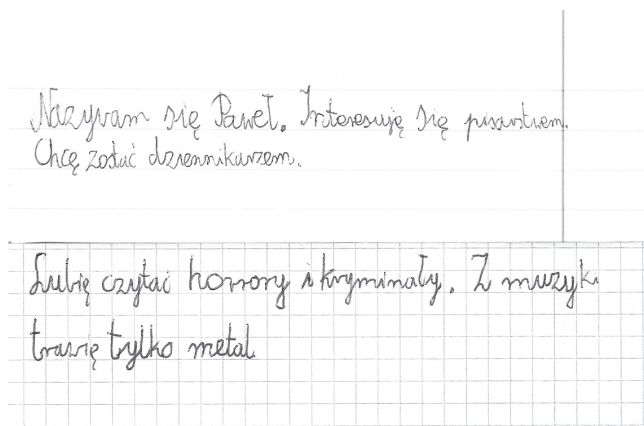 Nazywam się Paweł. Interesuję się pisarstwem.
Chcę zostać dziennikarzem.
Lubię czytać horrory i kryminały. Z muzyki
trawię tylko metal